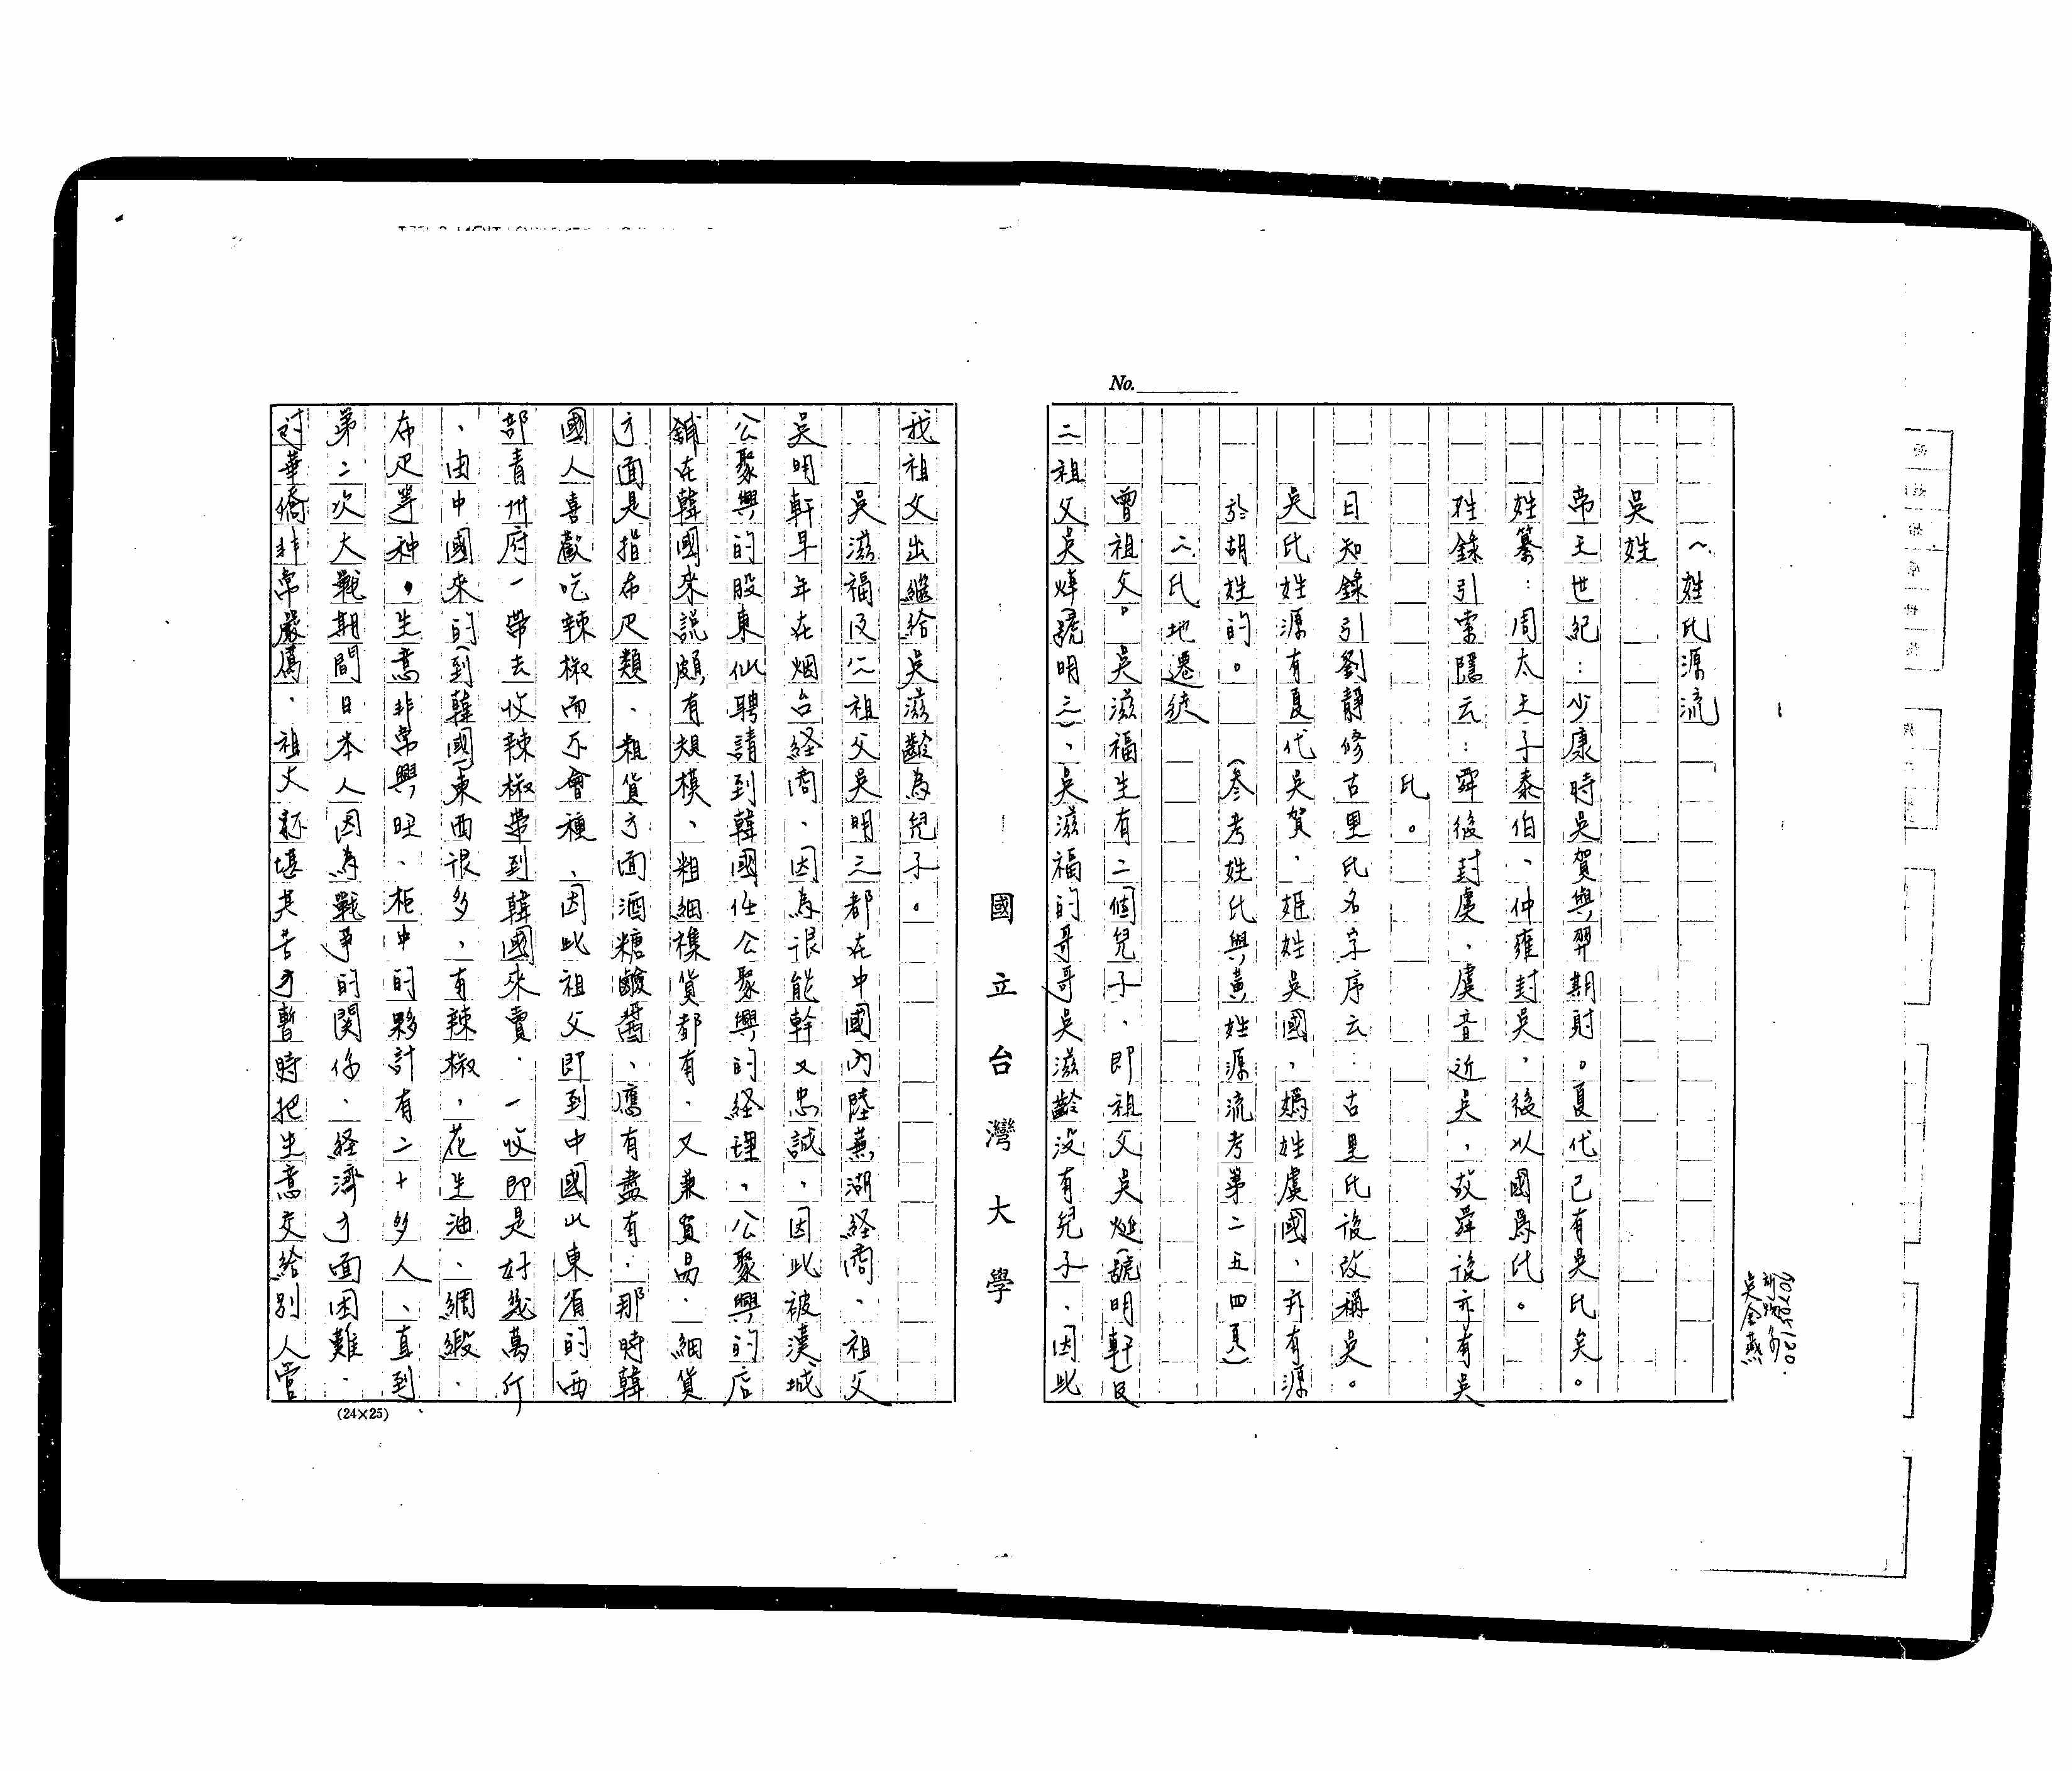 No.
一、姓氏源流
吳姓
帝王世紀：少康時吳賀與羿期射。夏代已有吳氏矣。
姓纂：周太王子泰伯、仲雍封吳，後以國爲氏。
姓錄引索隱云：舜後封虞，虞音近吳，故舜後亦有吳
氏。
日知錄引劉靜修古里氏名字序云：古里氏後改稱吳。
吳氏姓源有夏代吳賀，姬姓吳國，嬀姓虞國，幷有源
於胡姓的。 (參考姓氏與黃姓源流考第二五四頁)
二、氏地遷徙
曾祖父。吳滋福生有二個兒子，即祖父吳烻(號明軒)及
二祖父吳焯(號明三)，吳滋福的哥哥吳滋齡没有兒子，因此
吳金燕
國立台灣大學
我祖父出繼給吳滋齡為兒子。
吳滋福及二祖父吳明三都在中國內陸蕪湖経商，祖父
吳明軒早年在烟台経商，因為很能幹又忠誠，因此被漢城
公聚興的股東們聘請到韓國任公聚興的経理，公聚興的店
鋪在韓國來說頗有規模，粗細襍貨都有，又兼貿易，細貨
方面是指布疋類，粗貨方面酒糖鹼醬，應有盡有，那時韓
國人喜歡吃辣椒而不會種，因此祖父即到中國山東省的西
部青州府一帶去收辣椒帶到韓國來賣，一收即是好幾萬斤
，由中國來的(到韓國)東西很多，有辣椒，花生油，綢緞，
布疋等种。生意非常興旺，柜中的夥計有二十多人，直到
第二次大戰期間日本人因為戰爭的関係，経濟方面困難，
对華僑非常嚴厲，祖父难堪其苦才暫時把生意交給別人管
(24×25)